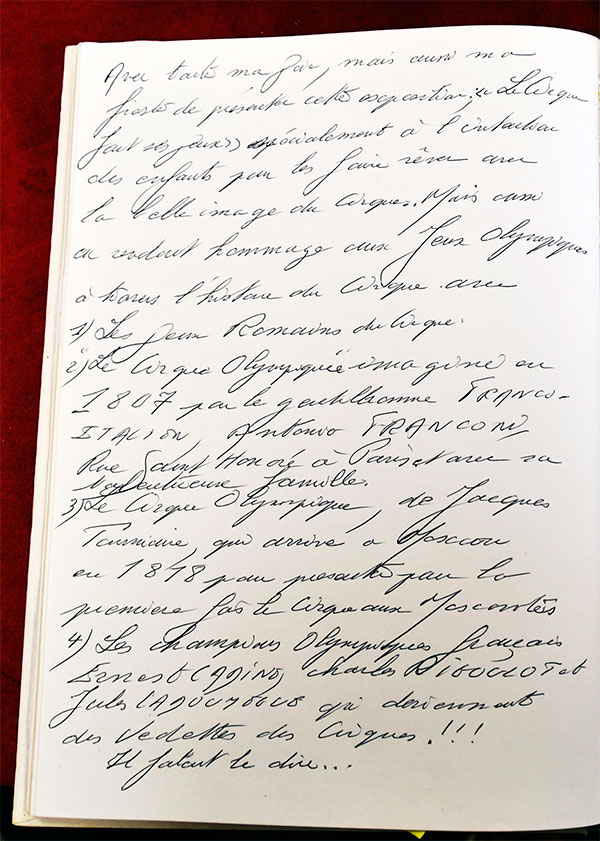 Avec toute ma joie, mais aussi ma
fierté de présenter cette exposition : « Le Cirque
fait ses jeux » spécialement à l'intention
des enfants pour les faire rêver avec
la belle image du Cirque. Mais aussi
en rendant hommage aux Jeux Olympiques
à travers l'histoire du Cirque avec
1) Les Jeux Romains du Cirque.
2) Le Cirque Olympique imaginé en
1807 par le gentilhomme FRANCO-
ITALIEN, Antonio FRANCONI,
Rue Saint Honoré à Paris et avec sa
talentueuse famille.
3) Le Cirque Olympique, de Jacques
Tourniaire, qui arrive a Moscou
en 1848 pour présenter pour la
première fois le Cirque aux Moscovites
4) Les champions Olympiques français
Ernest CADINE, Charles RIGOULOT et
Jules qui deviennent
des vedettes des Cirques !!!
Il falait le dire...